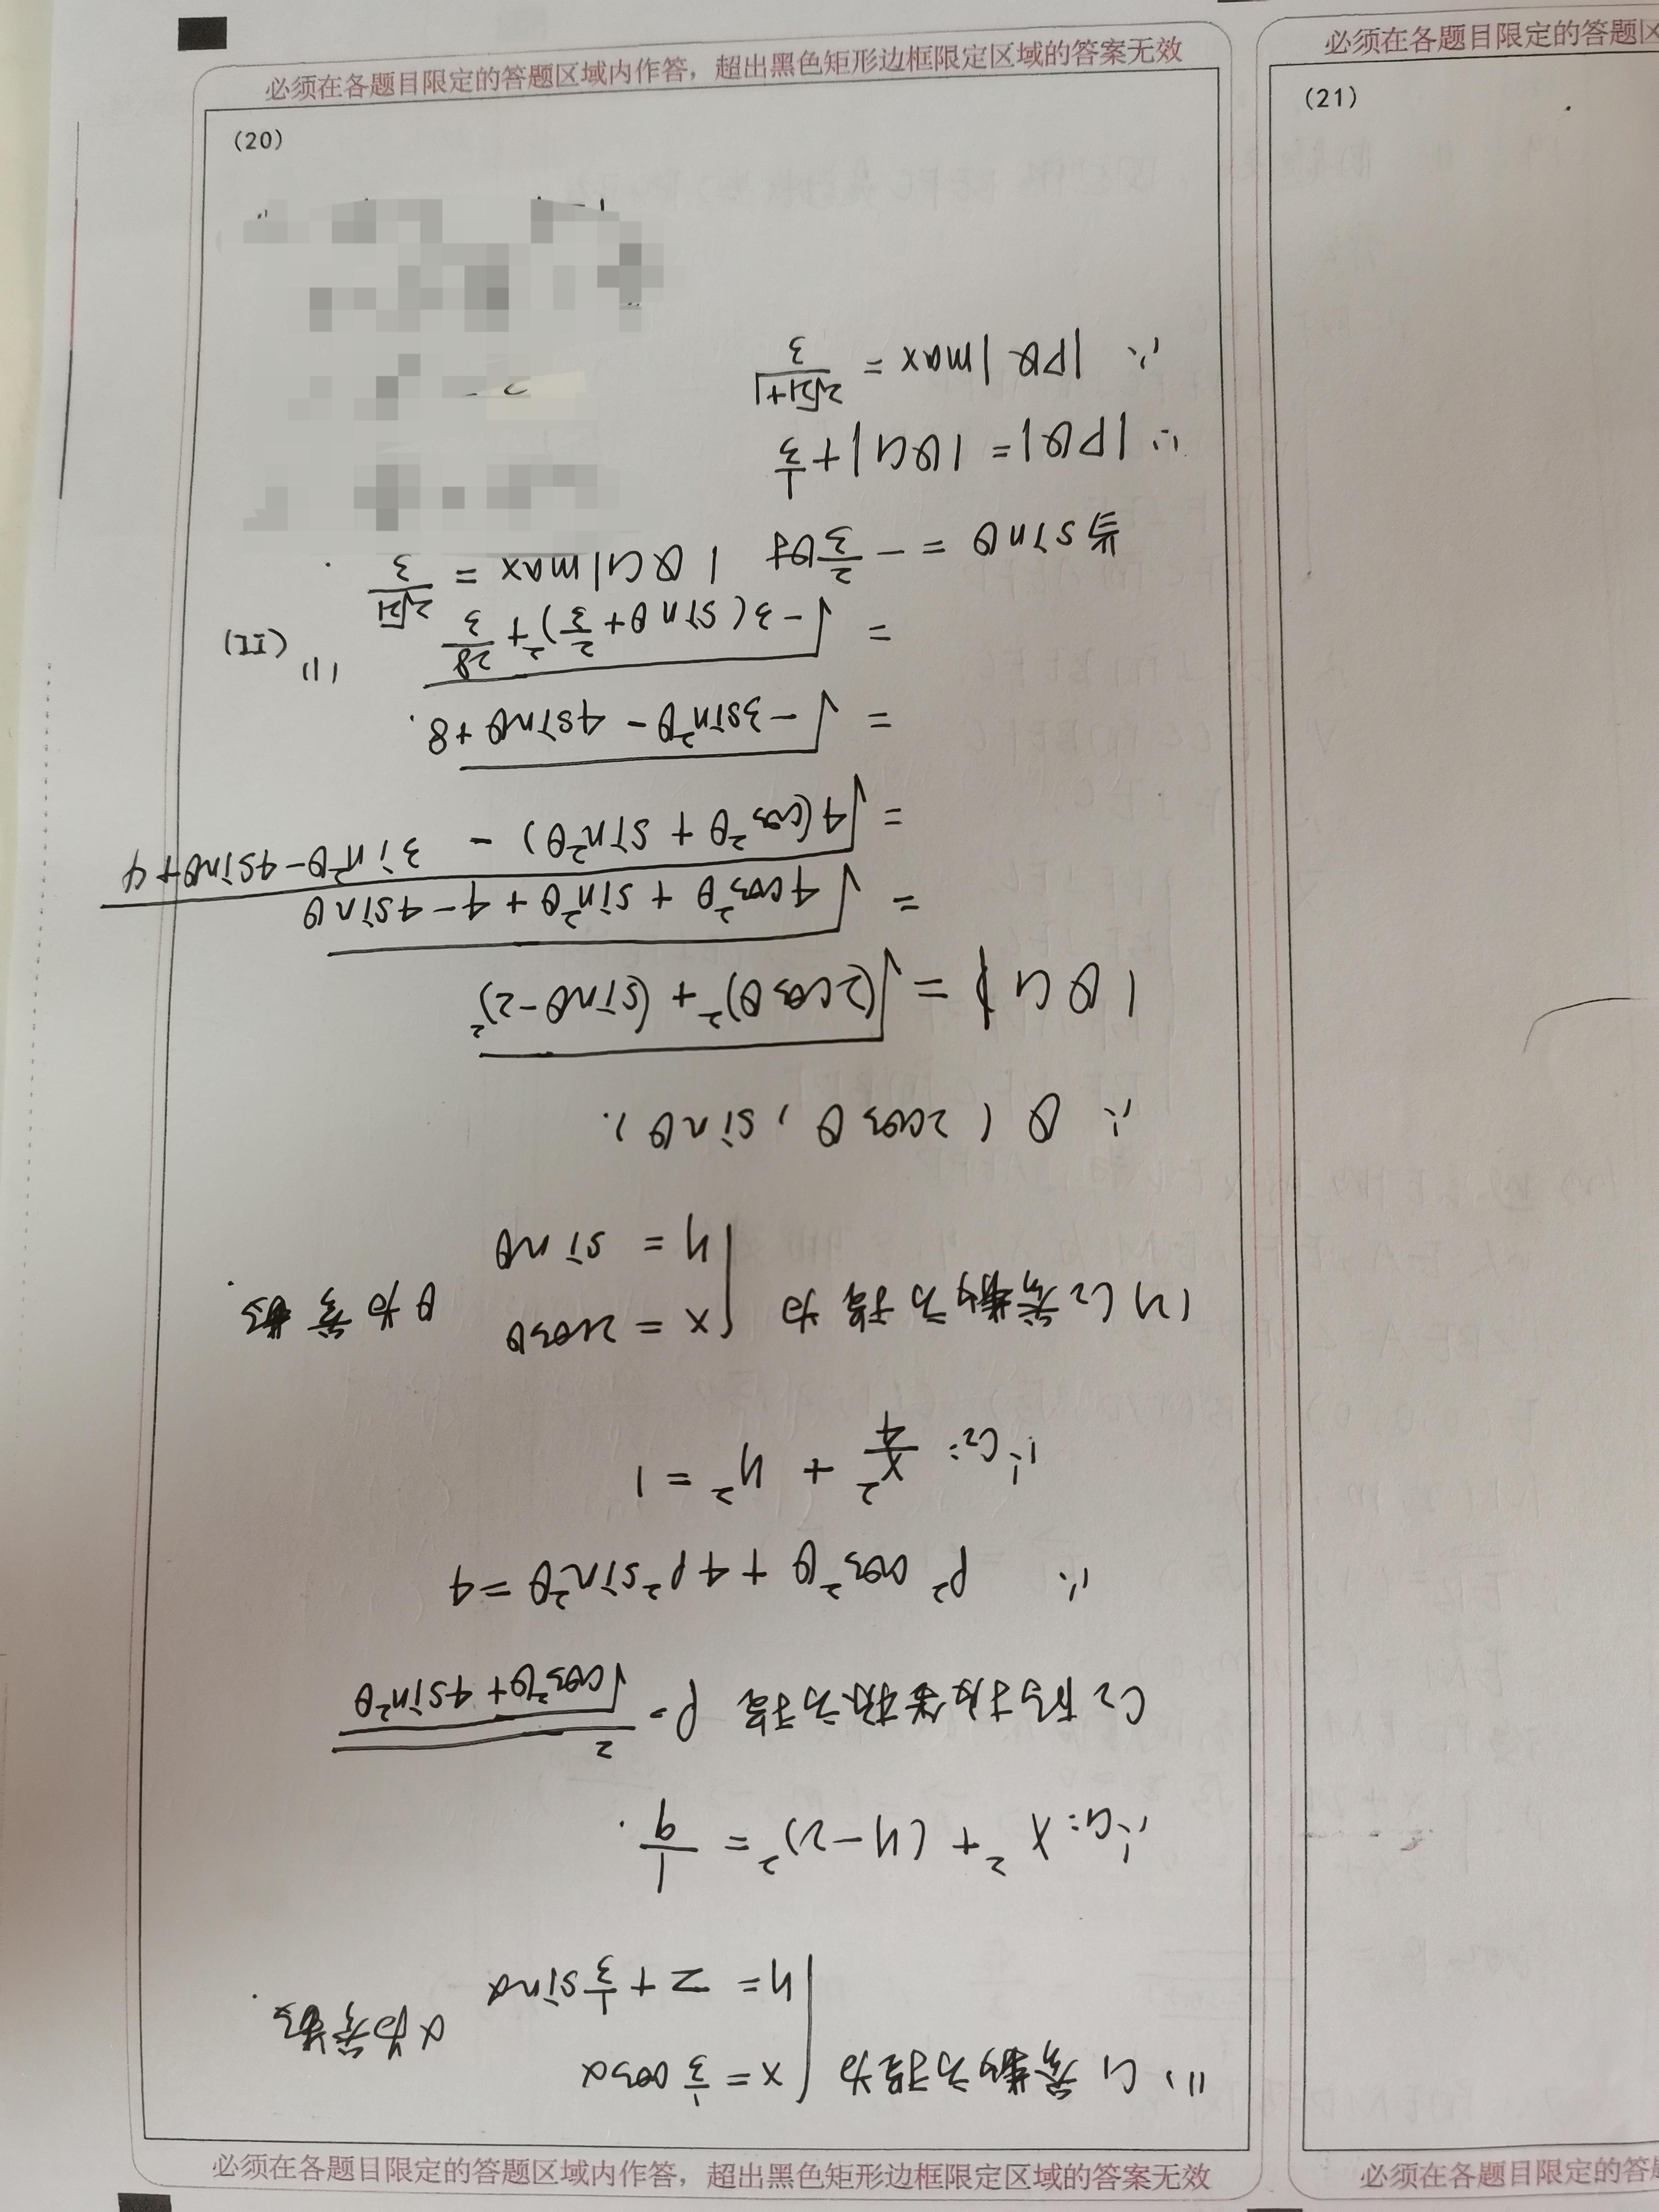 必须在各题目限定的答题区域内作答，超出黑色矩形边框限定区域的答案无效
必须在各题目限定的答题区
(20)
(21)
(1) C1 参数方程为 { x = 1/3 cosα
y = 2 + 1/3 sinα
α为参数.
∴ C1: x² + (y-2)² = 1/9.
C2的极坐标方程 ρ= 2/√(cos²θ+4sin²θ)
∴ ρ²cos²θ + 4ρ²sin²θ = 4
∴ C2: x²/4 + y² = 1
(2) C2 参数方程为 { x = 2cosθ
y = sinθ
θ为参数.
∴ Q (2cosθ, sinθ).
|QC1| = √((2cosθ)² + (sinθ-2)²)
= √(4cos²θ + sin²θ + 4 - 4sinθ)
= √(4(cos²θ + sin²θ) - 3sin²θ - 4sinθ + 4)
= √(-3sin²θ - 4sinθ + 8).
= √(-3(sinθ + 2/3)² + 28/3)
(II)
当sinθ = -2/3时 |QC1|max = 2√21/3.
∵ |PQ| = |QC1| + 1/3
∴ |PQ|max = (2√21+1)/3
必须在各题目限定的答题区域内作答，超出黑色矩形边框限定区域的答案无效
必须在各题目限定的答